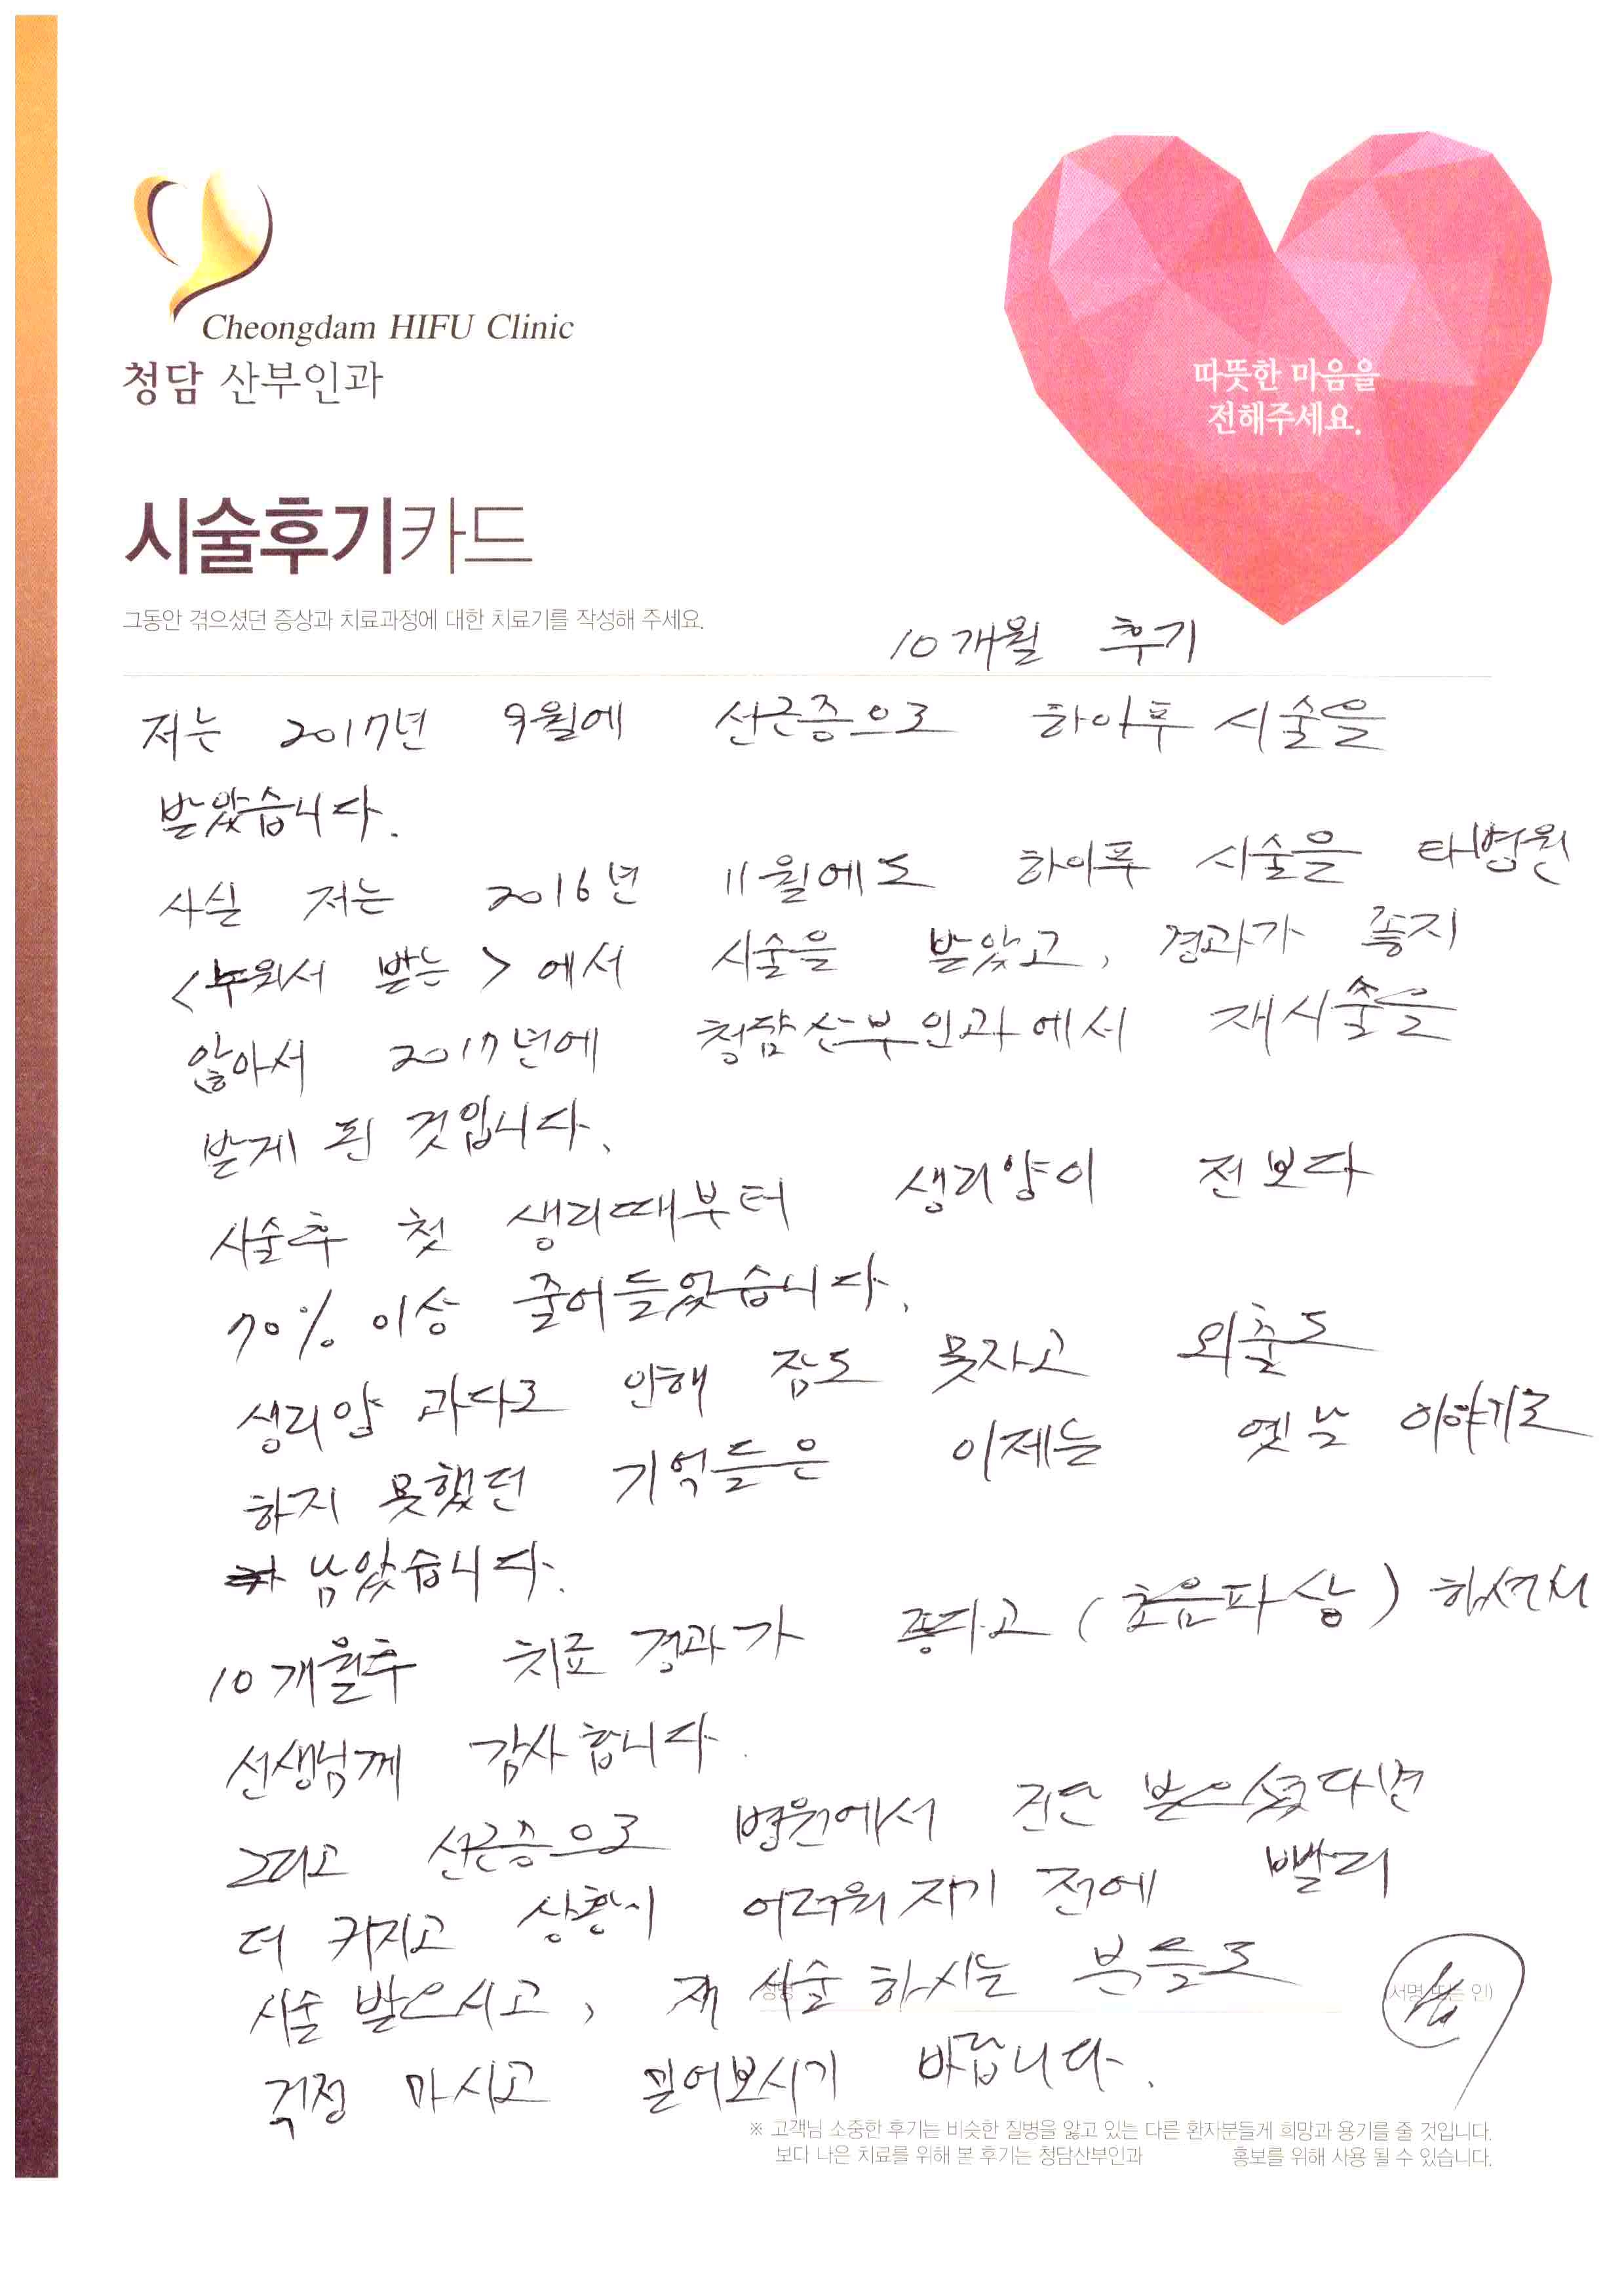 Cheongdam HIFU Clinic
청담 산부인과
따뜻한 마음을
전해주세요.
시술후기카드
그동안 겪으셨던 증상과 치료과정에 대한 치료기를 작성해 주세요.
10개월 후기
저는 2017년 9월에 선근증으로 하이푸 시술을
받았습니다.
사실 저는 2016년 11월에도 하이푸 시술을 타병원
<누워서 받는> 에서 시술을 받았고, 경과가 좋지
않아서 2017년에 청담산부인과에서 재시술을
받게 된 것입니다.
시술후 첫 생리때부터 생리양이 전보다
70% 이상 줄어들었습니다.
생리양 과다로 인해 잠도 못자고 외출도
하지 못했던 기억들은 이제는 옛날 이야기로
남았습니다.
10개월후 치료 경과가 좋다고 (초음파상) 하셔서
선생님께 감사합니다.
그리고 선근증으로 병원에서 진단 받으셨다면
더 커지고 상황이 어려워지기 전에 빨리
시술 받으시고, 재시술 하시는 분들도
성명
(서명 또는 인)
걱정 마시고 믿어보시기 바랍니다.
※ 고객님 소중한 후기는 비슷한 질병을 앓고 있는 다른 환자분들게 희망과 용기를 줄 것입니다.
보다 나은 치료를 위해 본 후기는 청담산부인과 홍보를 위해 사용 될 수 있습니다.